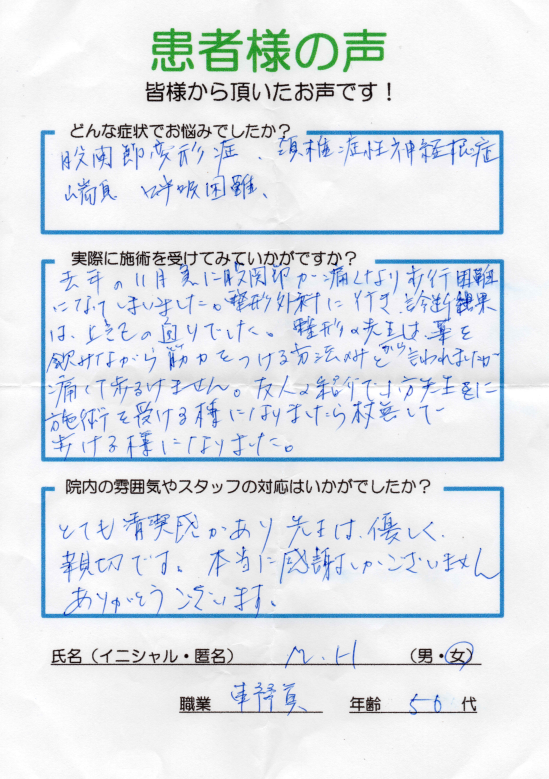 患者様の声
皆様から頂いたお声です！
どんな症状でお悩みでしたか？
股関節変形症、頚椎症性神経根症
喘息 呼吸困難、
実際に施術を受けてみていかがですか？
去年の11月急に股関節が痛くなり歩行困難
になってしまいました。整形外科に行き、診断結果
は、上記の通りでした。整形の先生は、薬を
飲みながら筋力をつける方法のみとから言われましたが
痛くて歩けません。友人の紹介で 先生に
施術を受ける様になりましたら杖無しで
歩ける様になりました。
院内の雰囲気やスタッフの対応はいかがでしたか？
とても清潔感があり 先生は、優しく、
親切です。本当に感謝しかございません
ありがとうございます。
氏名（イニシャル・匿名） M.H （男・女）
職業 事務員 年齢 50 代